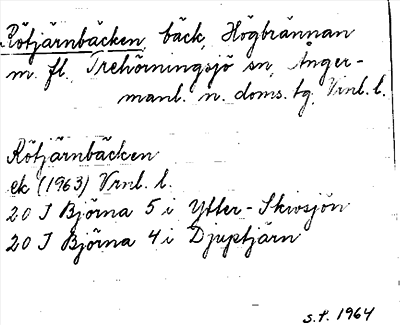 Rötjärnbäcken, bäck, Högbrännan
m. fl. Trehörningsjö sn, Ånger-
manl. n. doms. tg. Vrnl. l.
Rötjärnbäcken
ek (1963) Vrnl. l.
20 I Björna 5 i Ytter-Skivsjön
20 I Björna 4 i Djuptjärn
s.t. 1964